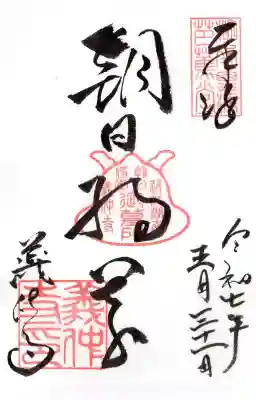 奉拝
朝日将軍
義仲寺
令和七年
五月三十一日
義仲寺印